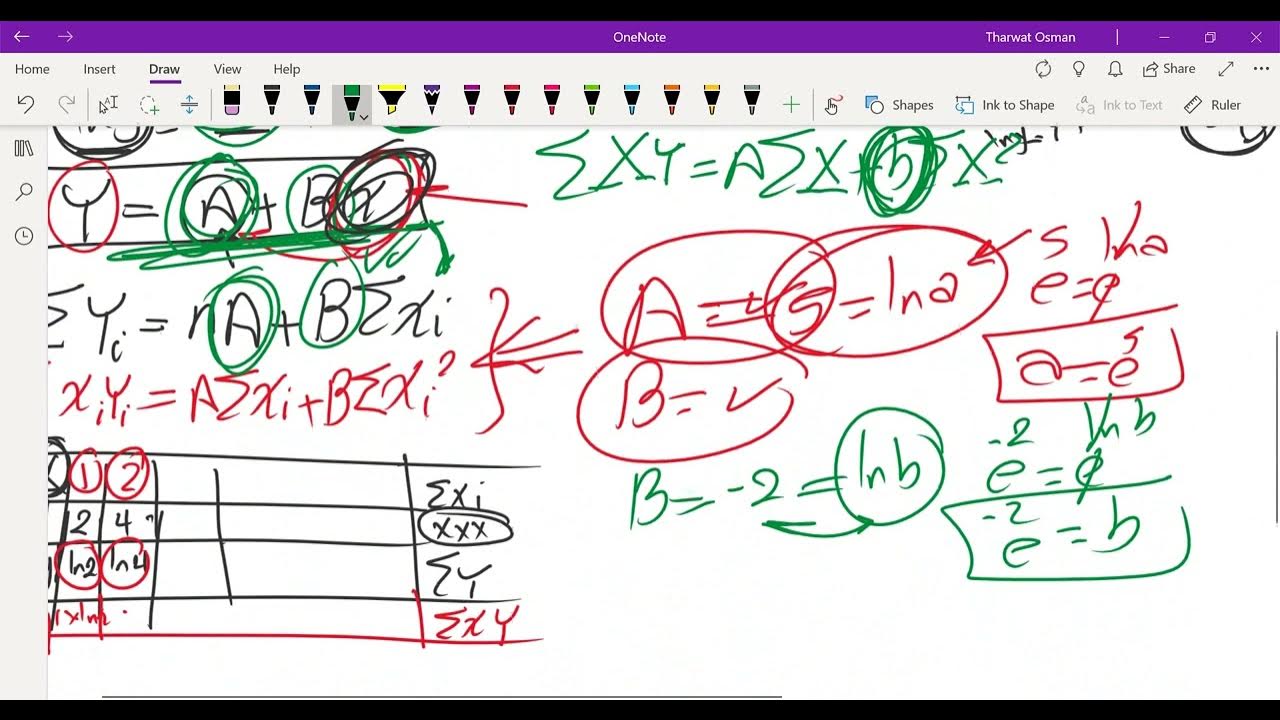 OneNote
Tharwat Osman
Home Insert Draw View Help
Share
Shapes Ink to Shape Ink to Text Ruler
Y = A + B x
ΣXY = AΣX + bΣX²
ΣYi = nA + BΣxi
xiYi = AΣxi + BΣxi²
A = 5 = ln a
5 ln a
e = e
a = e⁵
B = ✓
B = -2 = ln b
-2 ln b
e = e
-2
e = b
1 2 Σxi
2 4 xxx
ln2 ln4 ΣY
1xln2 ΣxY